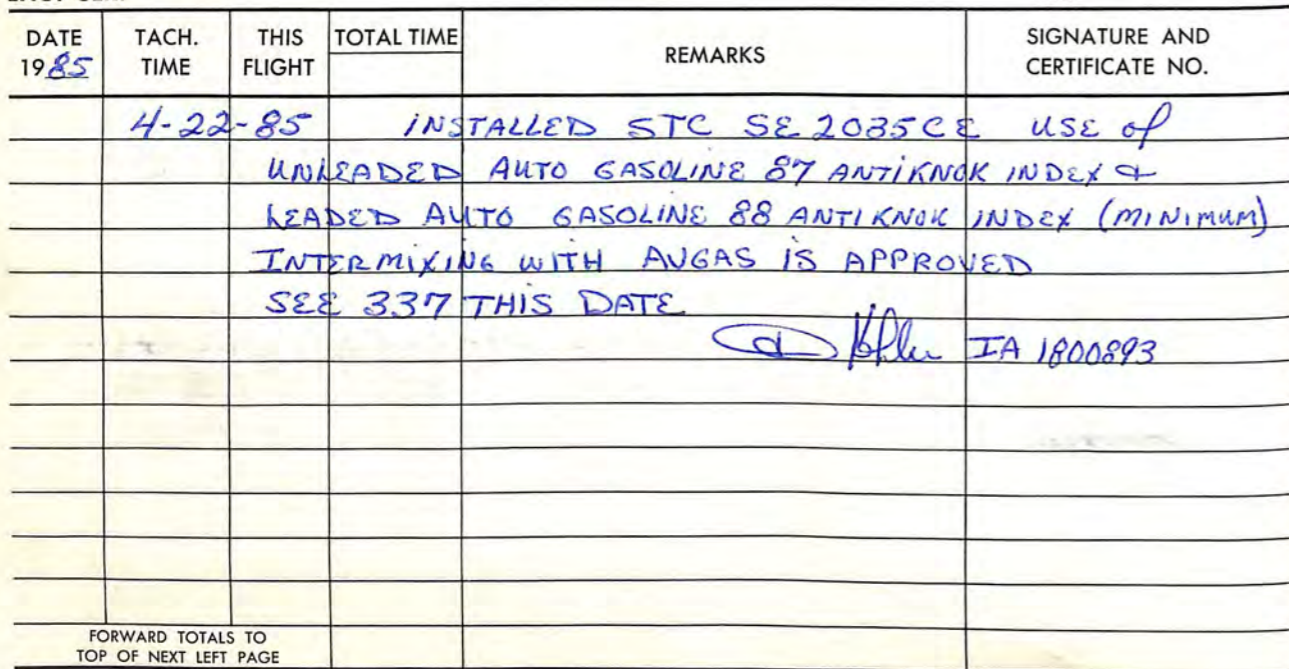 DATE TACH. THIS TOTAL TIME REMARKS SIGNATURE AND
1985 TIME FLIGHT CERTIFICATE NO.
4-22-85 INSTALLED STC SE2035CE USE of
UNLEADED AUTO GASOLINE 87 ANTIKNOK INDEX &
LEADED AUTO GASOLINE 88 ANTIKNOK INDEX (MINIMUM)
INTERMIXING WITH AVGAS IS APPROVED
SEE 337 THIS DATE
IA 1800893
FORWARD TOTALS TO
TOP OF NEXT LEFT PAGE